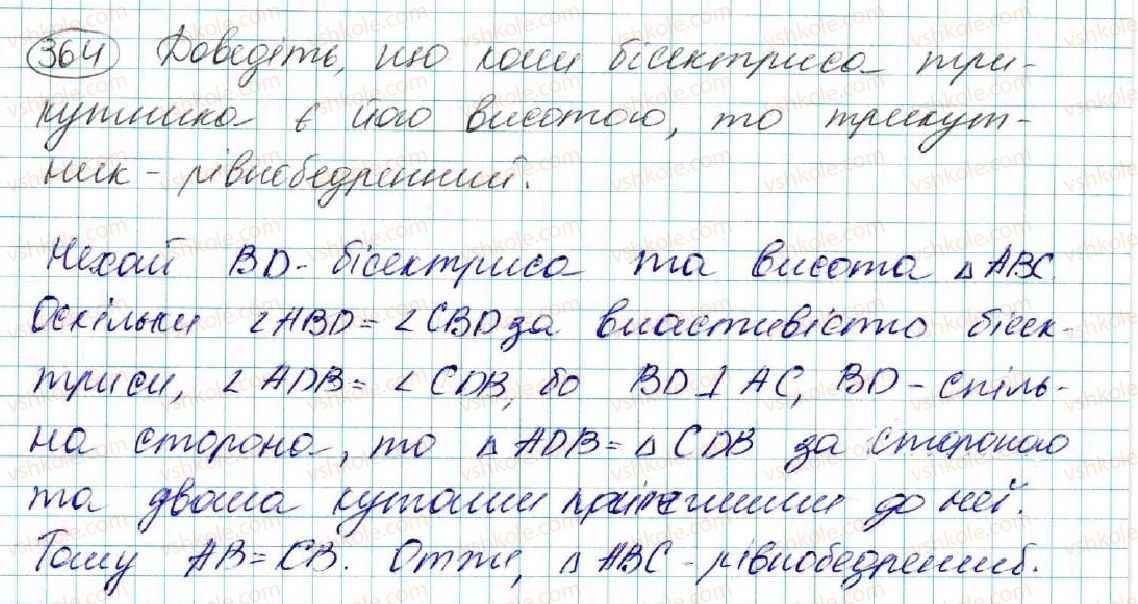 364 Доведіть, що коли бісектриса три-
кутника є його висотою, то трикут-
ник - рівнобедренний.
Нехай BD - бісектриса та висота △ ABC.
Оскільки ∠ABD = ∠CBD за властивістю бісек-
триси, ∠ADB = ∠CDB, бо BD ⊥ AC, BD - спіль-
на сторона, то △ ADB = △ CDB за стороною
та двома кутами прилеглими до неї.
Тому AB = CB. Отже, △ ABC - рівнобедренний.